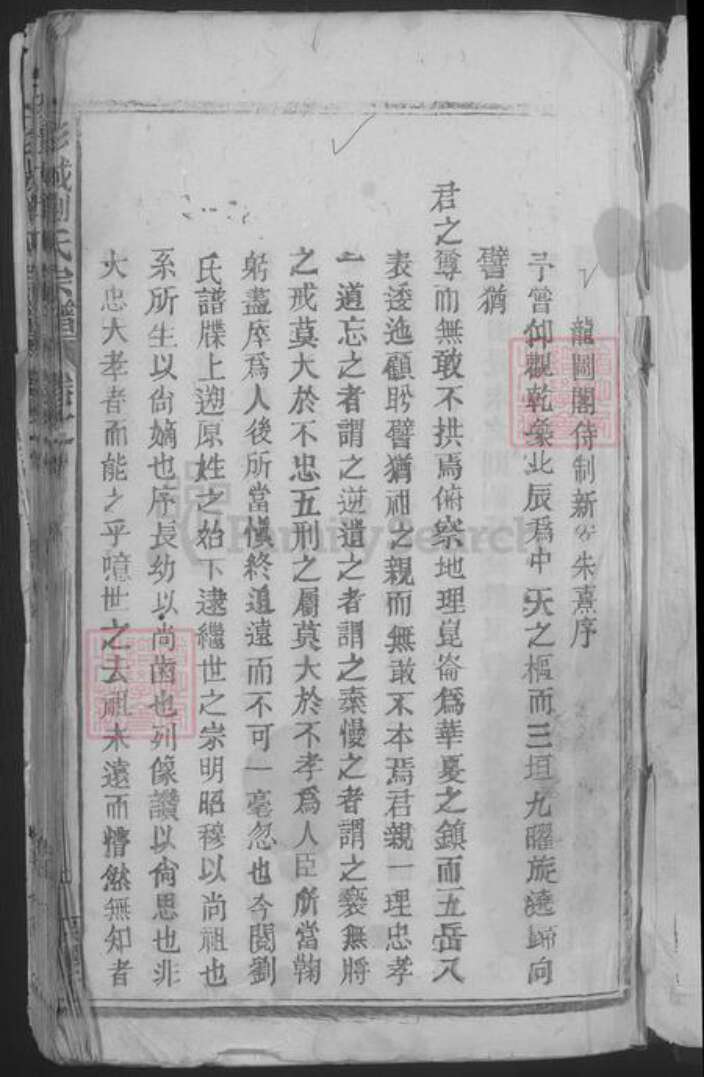 龍圖閣侍制新安朱熹序
予嘗仰觀乾象北辰爲中天之樞而三垣九曜旋遶歸向
譬猶
君之尊而無敢不拱焉俯察地理崑崙爲華夏之鎮而五岳八
表逶迤顧盻譬猶祖之親而無敢不本焉君親一理忠孝
一道忘之者謂之逆遺之者謂之慢之者謂之褻無將
之戒莫大於不忠五刑之屬莫大於不孝爲人臣所當鞠
躬盡瘁爲人後所當愼終追遠而不可一毫忽也今閱劉
氏譜牒上遡原姓之始下逮繼世之宗明昭穆以尚祖也
系所生以尙嫡也序長幼以尚齒也列像讚以尙思也非
大忠大孝者而能之乎噫世之去祖未遠而懵然無知者
彭城劉氏宗譜
FamilySearch